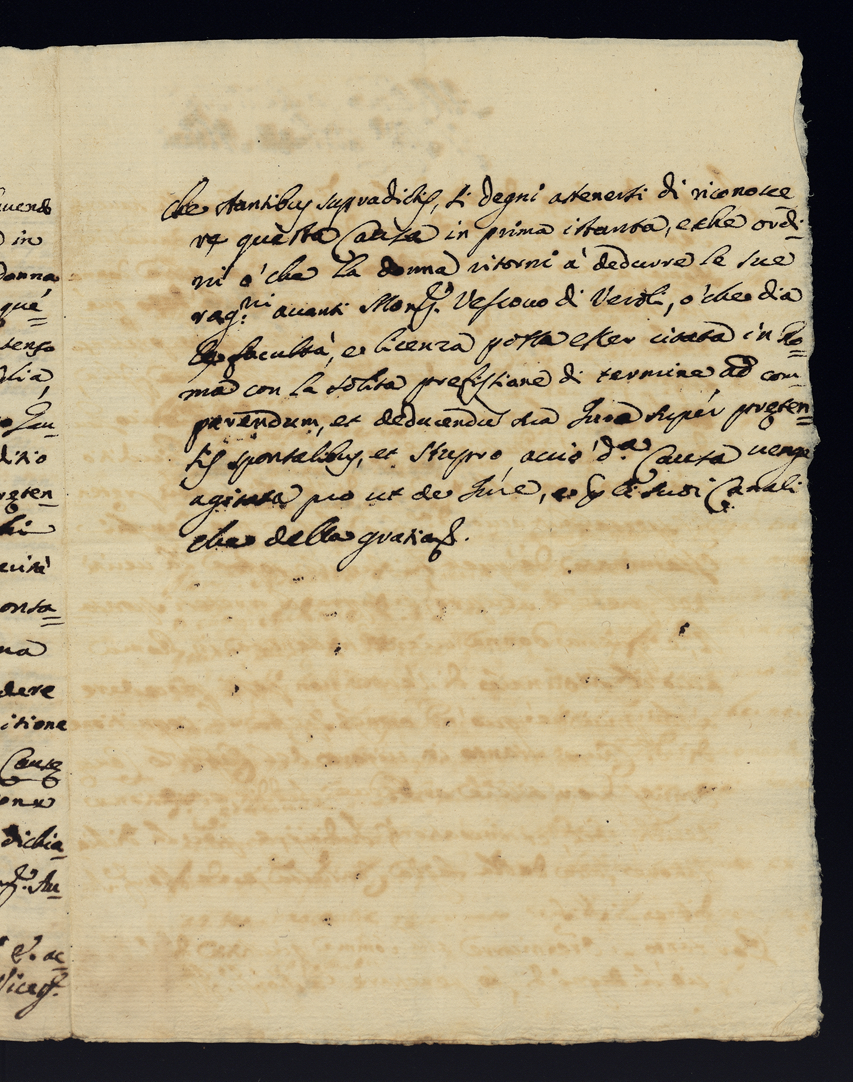 auendo
in
donna
qué=
tenso
lia,
Iu=
ditio
reten=
onsa=
ma
dere
itione
Cause
dichia=
Au=
che stantibus supradictis, si degni astenersi di riconosce
re questa Causa in prima istanza, e che ordi=
ni ó che la donna ritorni á dedurre le sue
rag.ni auanti Mons.r Vescouo di Veroli, ó che dia
le facultá, e licenza possa esser citata in Ro=
ma con la solita prefissione di termine ad com=
parendum, et deducendu sua Iura super preten=
sis sponsalibus, et stupro, acció d.a Causa uenga
agitata pro ut de Iure, e li suoi Canali
che della gratia